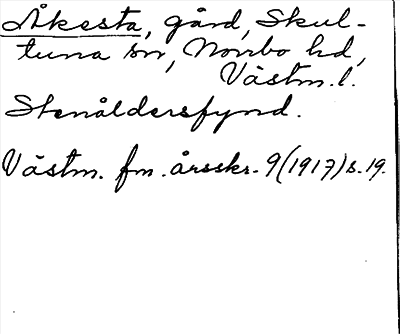 Åkesta, gård, Skul-
tuna sn, Norrbo hd,
Västm. l.
Stenåldersfynd.
Västm. fm. årsskr. 9(1917) s. 19.